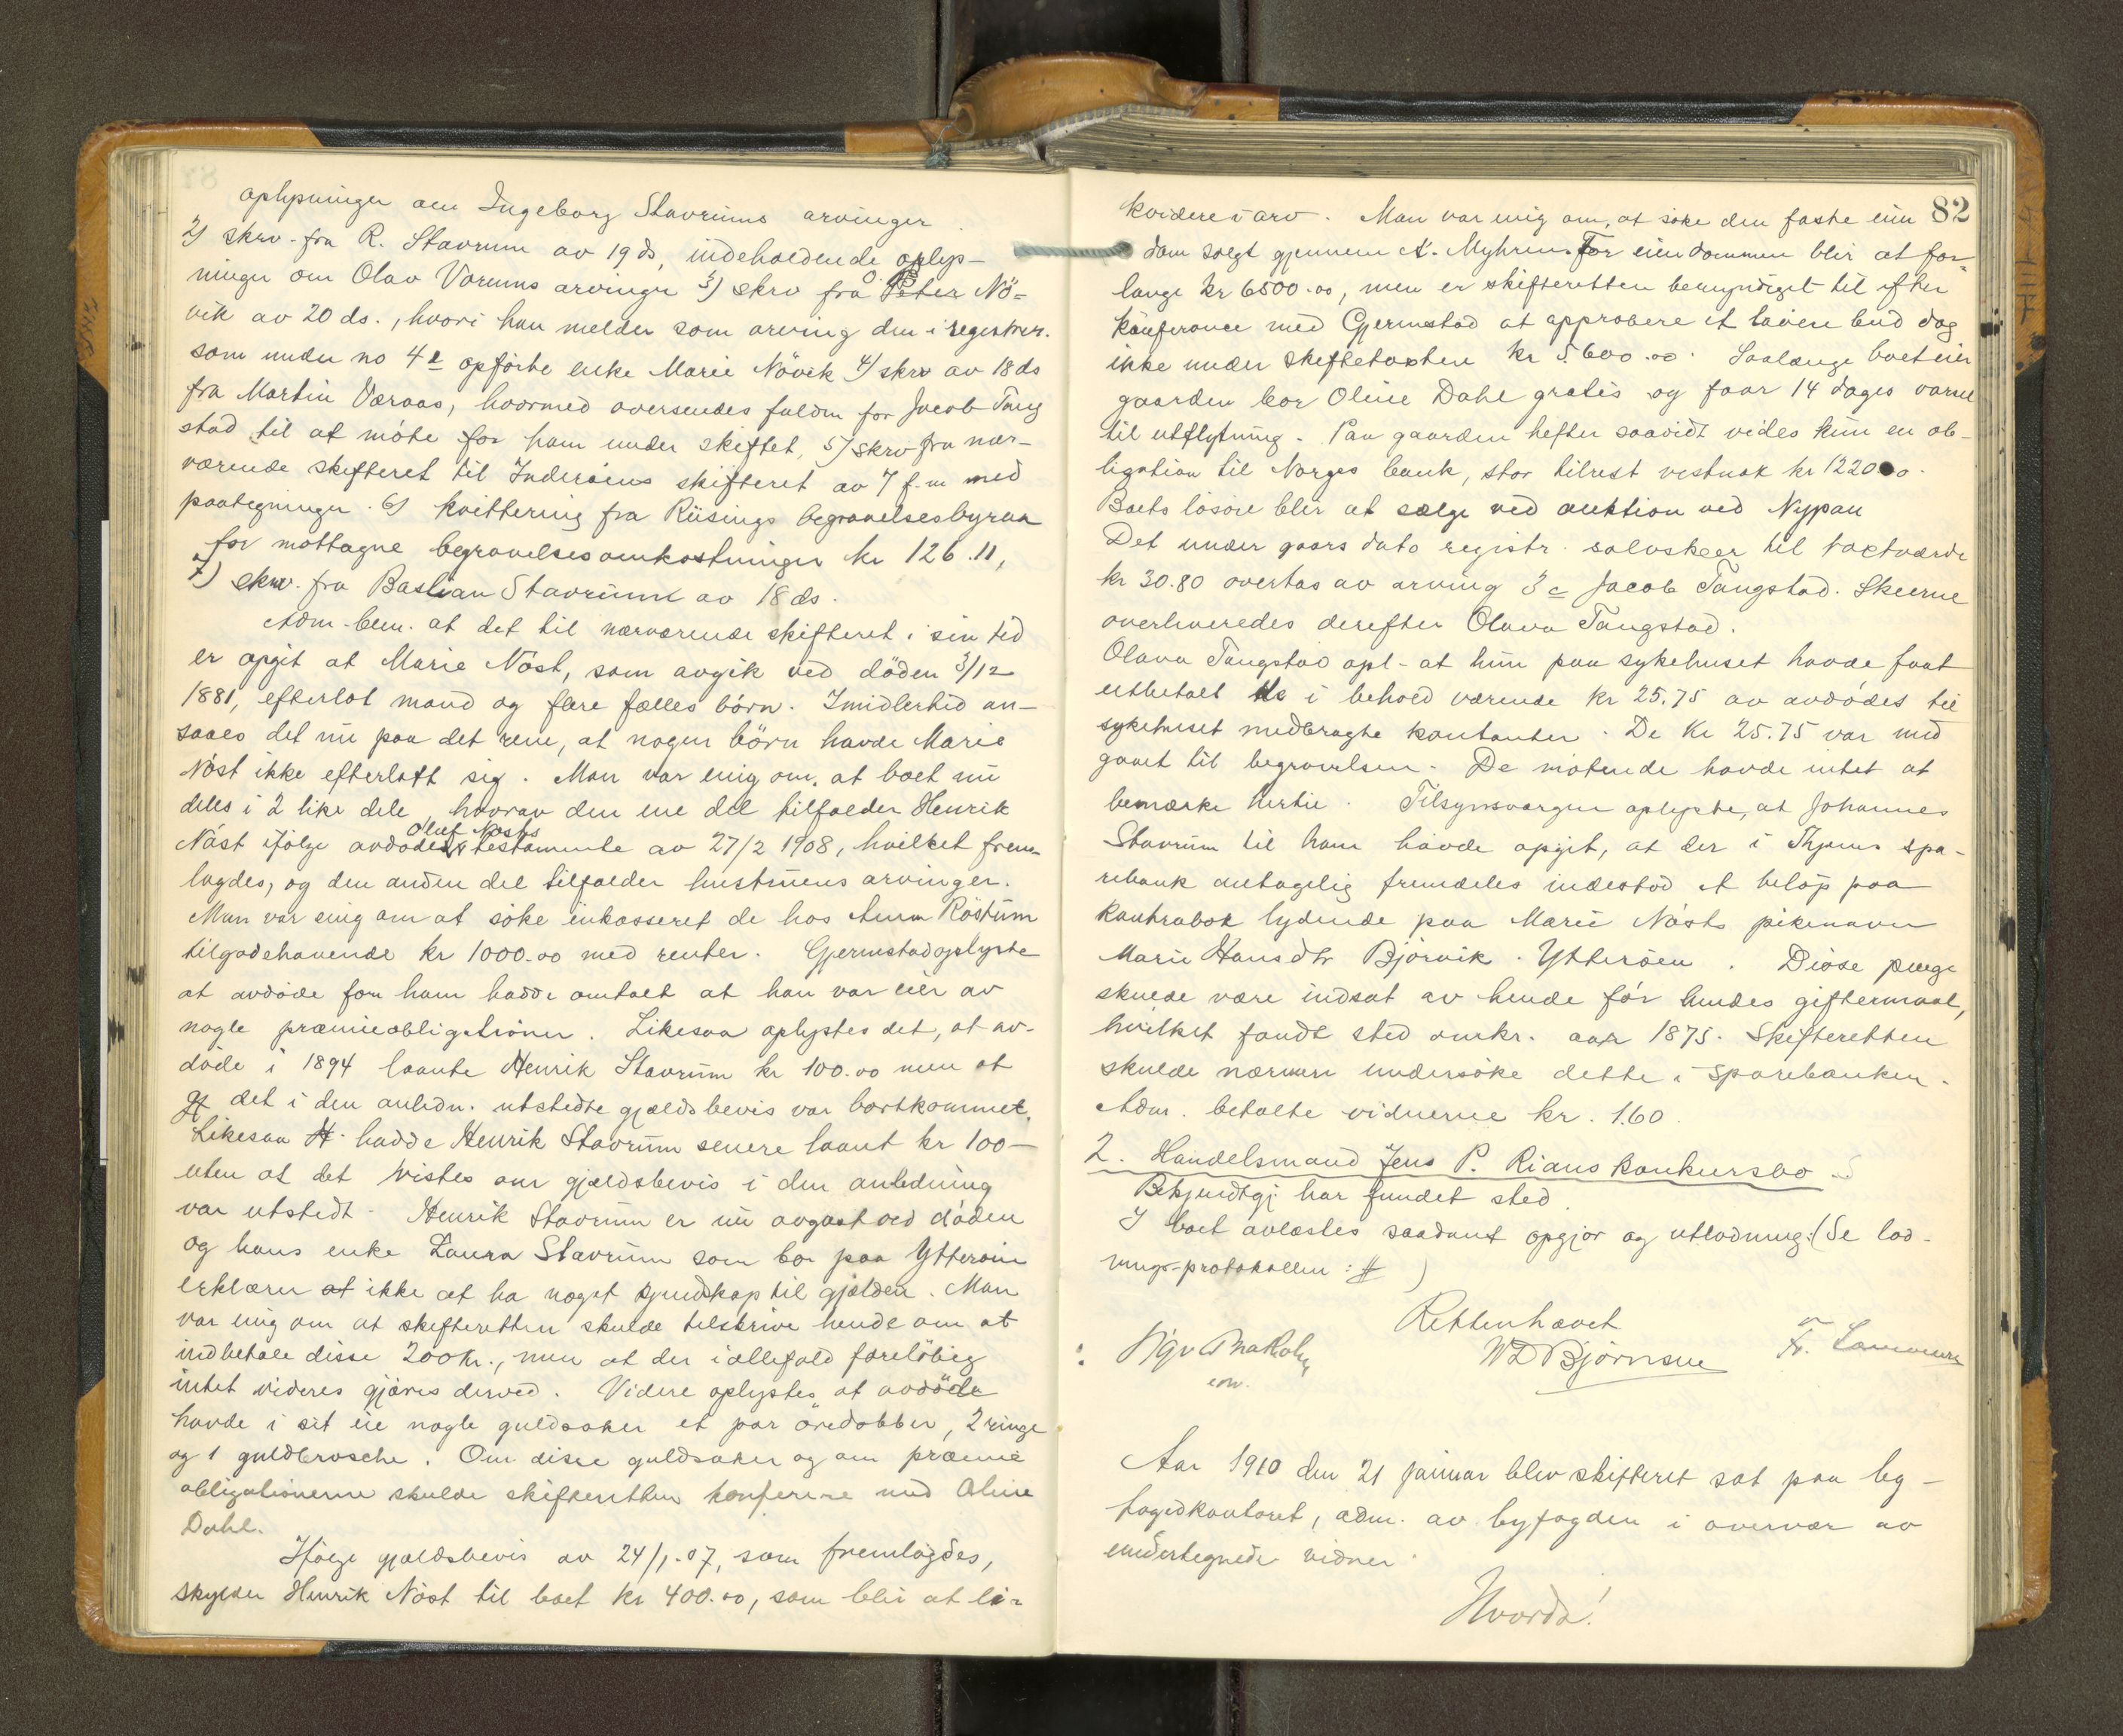 oplysninger om Ingeborg Stavrums arvinger
2) skrv. fra R. Stavrum av 19 ds, indeholdende oplys-
ninger om Olav Vorums arvinger 3) skrv fra O. B. Nö-
vik av 20 ds., hvori han melder som arving den i registrer.
som under no 4e opførte enke Marie Növik 4) skrv av 18 ds
fra Martin Væraas, hvormed oversendes fuldm for Jacob Tang
stad til at møte for ham under skiftet, 5) skrv fra nær-
værende skifteret til Inderøens skifteret av 7 f.m med
paategninger. 6) kvittering fra Riisings begravelsesbyraa
for mottagne begravelsesomkostninger kr 126.11,
7) skrv. fra Bastian Stavrum av 18 ds.
Adm. bem. at det til nærværende skifteret i sin tid
er opgit at Marie Nöst, som avgik ved döden 3/12
1881, efterlot mand og flere fælles börn. Imidlertid an-
saaes det nu paa det rene, at nogen börn havde Marie
Nöst ikke efterlatt sig. Man var enig om, at boet nu
deles i 2 like dele, hvorav den ene del tilfalder Henrik
Oluf Nösts
Nöst ifölge avdödes testamente av 27/2 1908, hvilket frem-
lagdes, og den anden del tilfalder hustruens arvinger.
Man var enig om at söke inkasseret de hos Anna Röstum
tilgodehavende kr 1000.00 med renter. Gjermstad oplyste
at avdöde for ham hadde omtalt at han var eier av
nogle præmieobligationer. Likesaa oplystes det, at av-
döde i 1894 laante Henrik Stavrum kr 100.00 men at
det i den anledn. utstedte gjældsbevis var bortkommet.
Likesaa hadde Henrik Stavrum senere laant kr 100-
uten at det vistes om gjældsbevis i den anledning
var utstedt. Henrik Stavrum er nu avgaat ved döden
og hans enke Laura Stavrum som bor paa Ytteröen
erklærer at ikke at ha noget kjendskap til gjælden. Man
var enig om at skifteretten skulde tilskrive hende om at
indbetale disse 200 kr., men at der i allefald forelöbig
intet videres gjöres derved. Videre oplystes at avdöde
havde i sit eie nogle guldsaker et par öredobber, 2 ringe
og 1 guldbrosche. Om disse guldsaker og om præmie
obligationerne skulde skifteretten konferere med Oline
Dahl.
Ifölge gjældsbevis av 24/1-07, som fremlagdes,
skylder Henrik Nöst til boet kr 400.00, som blir at li-
82
kvidere i arv. Man var enig om, at söke den faste eien
dom solgt gjennem A. Myhren. For eiendommen blir at for-
lange kr 6500.00, men er skifteretten bemyndiget til efter
konferance med Gjermstad at approbere et lavere bud dog
ikke under skiftetaxten kr 5600.00. Saalænge boet eier
gaarden bor Oline Dahl gratis og faar 14 dages varsel
til utflytning. Paa gaarden hefter saavidt vides kun en ob-
ligation til Norges bank, stor tilrest vistnok kr 1220.00.
Boets lösöre blir at sælge ved auktion ved Nypan
Det under gaars dato registr. sölvskeer til taxtværdi
kr 30.80 overtas av arving 3 c Jacob Tangstad. Skeerne
overleveredes derefter Olava Tangstad.
Olava Tangstad opl. at hun paa sykehuset havde faat
utbetalt de i behold værende kr 25.75 av avdödes til
sykehuset medbragte kontanter. De kr 25.75 var med
gaaet til begravelsen. De mötende havde intet at
bemærke hertil. Tilsynsværgen oplyste, at Johannes
Stavrum til ham havde opgit, at der i Thjems spa-
rebank antagelig fremdeles indestod et belöp paa
kontrabok lydende paa Marie Nösts pikenavn
Marie Hansdtr Björvik. Ytteröen. Disse penge
skulde være indsat av hende för hendes giftermaal,
hvilket fandt sted omkr. aar 1875. Skifteretten
skulde nærmere undersöke dette i sparebanken.
Adm. betalte vidnerne kr. 1.60
2. Handelsmand Jens P. Rians konkursbo
Bekjendtgj. har fundet sted
I boet avlæstes saadant opgjör og utlodning: (Se lod-
nings-protokollen: )
Retten hævet
W D Björnsen
Aar 1910 den 21 januar blev skifteret sat paa by-
fogedkontoret, adm. av byfogden i overvær av
undertegnede vidner.
Hvorda!